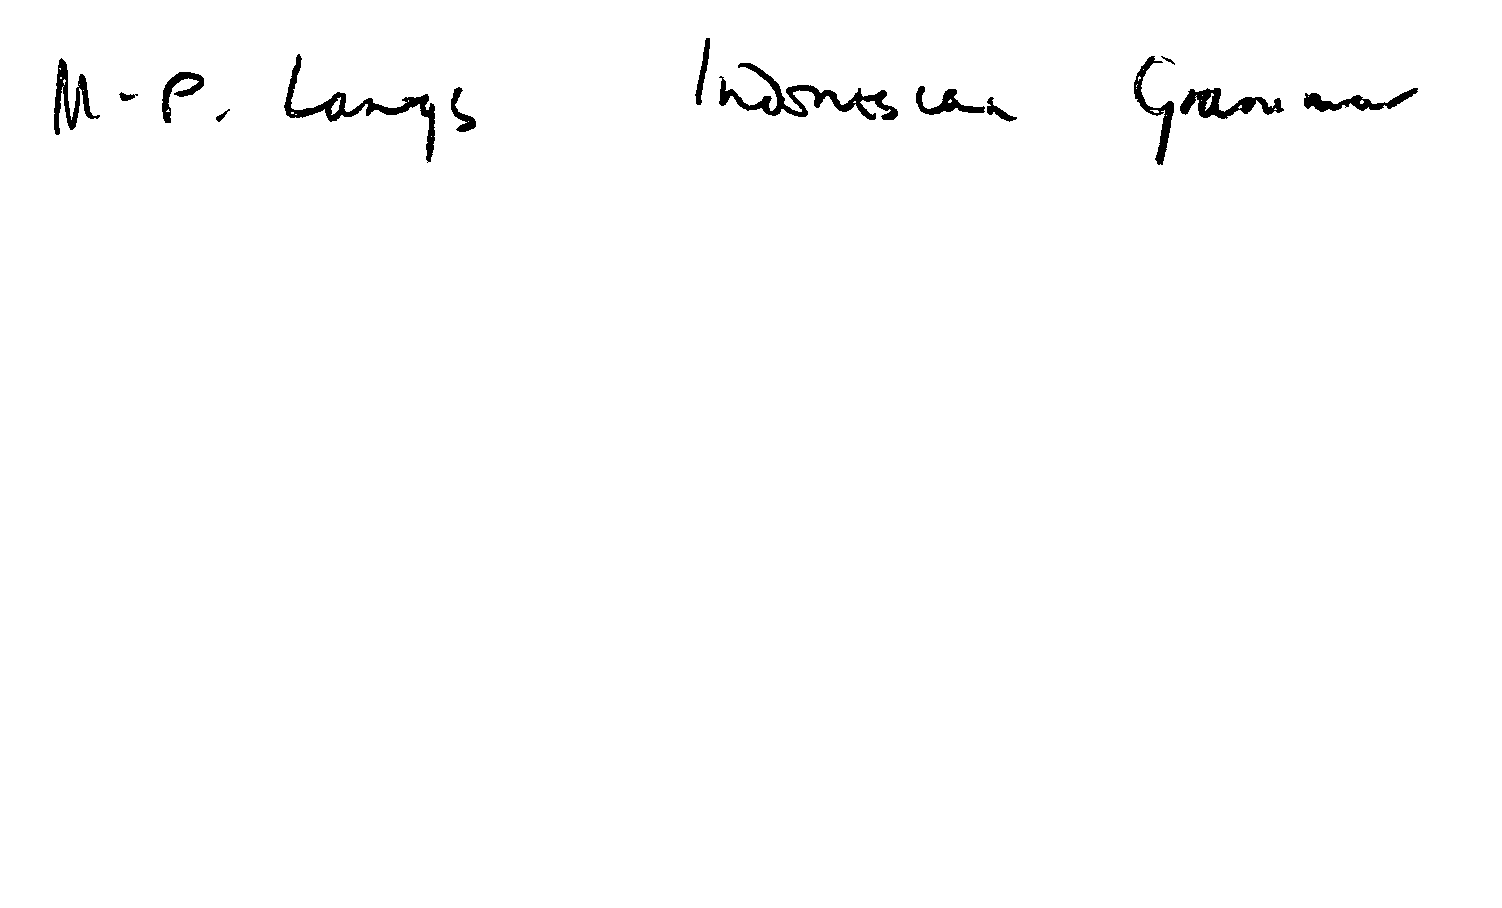 M-P. Langs Indonesian Grammar